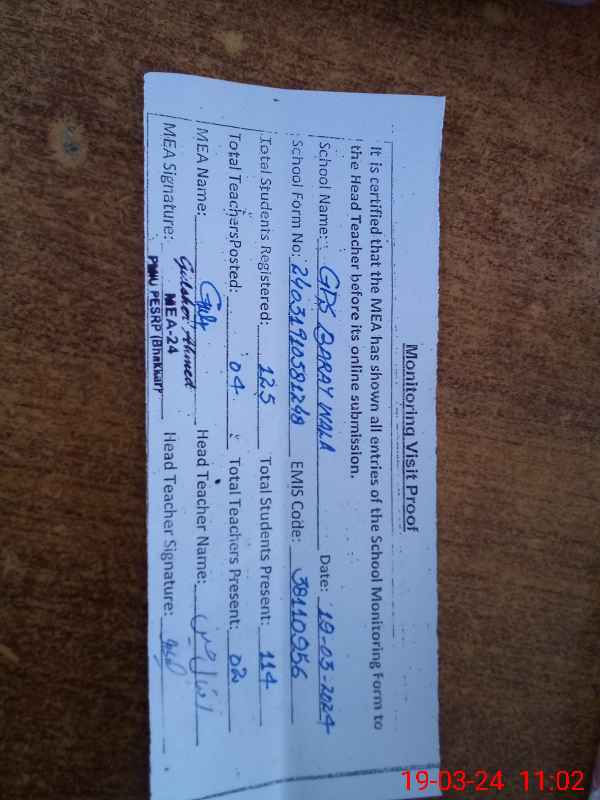 Monitoring Visit Proof
It is certified that the MEA has shown all entries of the School Monitoring Form to
the Head Teacher before its online submission.
School Name: GPS WALA Date: 19-03-2024
School Form No: EMIS Code: 38110956
Total Students Registered: 125 Total Students Present: 114
Total TeachersPosted: 04 Total Teachers Present: 02
MEA Name: Head Teacher Name:
Gulsher Ahmed
MEA Signature: MEA-24 Head Teacher Signature:
PMU PESRP (Bhakkar)
19-03-24 11:02